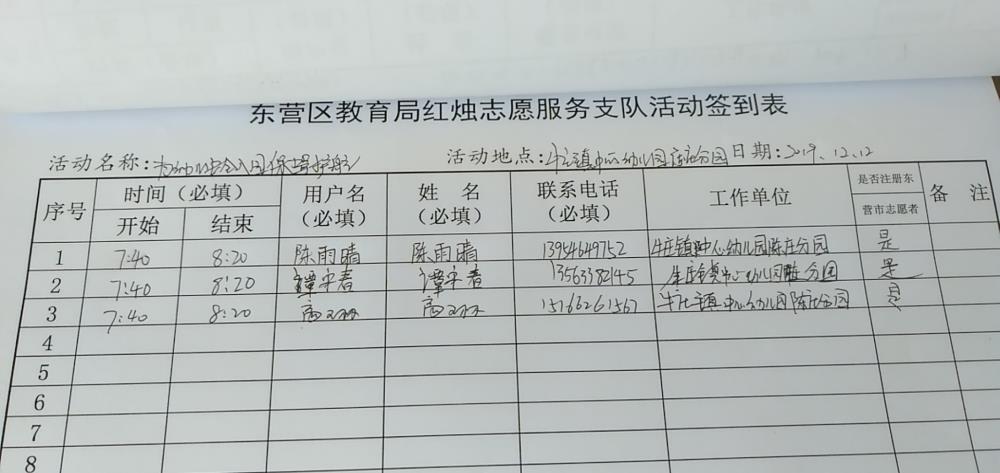 东营区教育局红烛志愿服务支队活动签到表
活动名称：为幼儿安全入园保驾护航 活动地点：牛庄镇中心幼儿园陈庄分园 日期：2019.12.12
序号 时间（必填） 用户名（必填） 姓 名（必填） 联系电话（必填） 工作单位 是否注册东营市志愿者 备 注
开始 结束
1 7:40 8:20 陈雨晴 陈雨晴 13954649752 牛庄镇中心幼儿园陈庄分园 是
2 7:40 8:20 谭平春 谭平春 牛庄镇中心幼儿园陈庄分园 是
3 7:40 8:20 15166261567 牛庄镇中心幼儿园陈庄分园 是
4
5
6
7
8